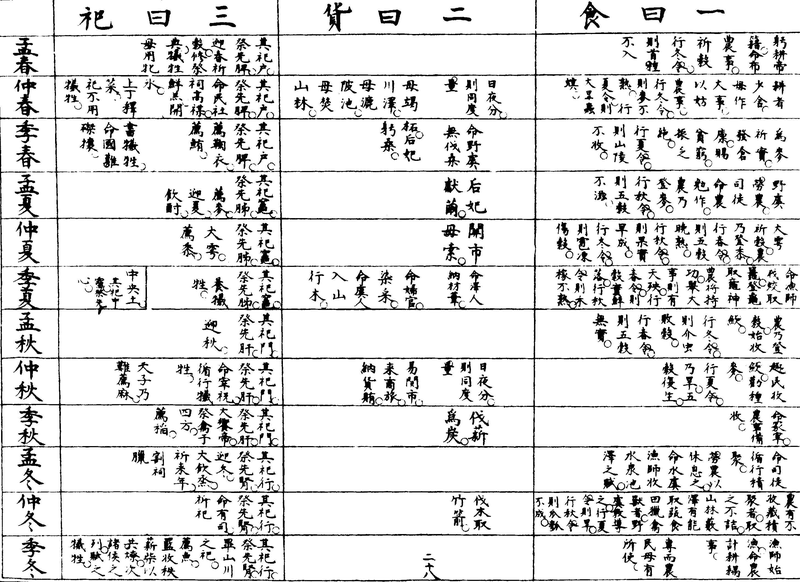 一曰食
二曰貨
三曰祀
躬耕帝
藉命布
農事
祈穀
行冬令
則首種
不入
其祀戶
祭先脾
迎春祈
穀修祭
典犧牲
毋用牝
孟春
耕者
少舍
毋作
大事
以妨
農事
行冬令
則麥不
熟行
夏令則
大旱蟲
螟
日夜分
則同度
量
毋竭
川澤
毋漉
陂池
毋焚
山林
其祀戶
祭先脾
命民社
祠高禖
鮮羔開
冰
上丁釋
菜
祀不用
犧牲
仲春
為麥
祈實
發倉
廩賜
貧窮
振乏
絕
行夏令
則山陵
不收
命野虞
無伐桑
柘后妃
躬桑
其祀戶
祭先脾
薦鞠衣
薦鮪
書犧牲
命國難
磔攘
季春
野虞
勞農
司徒
命農
勉作
農乃
登麥
行秋令
則五穀
不滋
后妃
獻繭
其祀竈
祭先肺
薦麥
迎夏
飲酎
孟夏
大雩
祈穀農
乃登黍
行春令
則五穀
晚熟
行秋令
則果實
早成
行冬令
則雹凍
傷穀
關市
毋索
其祀竈
祭先肺
大雩
薦黍
仲夏
命漁師
伐蛟取
鼉登龜
取黿神
農將持
功舉大
事則有
天殃行
春令則
穀實鮮
落行秋
令則禾
稼不熟
命澤人
納材葦
命婦官
染采
命虞人
入山
行木
其祀竈
祭先肺
養犧
牲
中央土
其祀中
霤祭先
心
季夏
農乃登
穀始收
斂
行冬令
則介虫
敗穀
行春令
則五穀
無實
其祀門
祭先肝
迎秋
孟秋
趣民收
斂勸種
麥
行夏令
乃旱五
穀復生
日夜分
則同度
量
易關市
來商旅
納貨賄
其祀門
祭先肝
命宰祝
循行犧
牲
天子乃
難薦麻
仲秋
命冢宰
農事備
收
伐薪
為炭
其祀門
祭先肝
大饗帝
祭禽于
四方
薦稻
季秋
命司徒
循行積
聚
勞農以
休息之
命水虞
漁師收
水泉池
澤之賦
其祀行
祭先腎
迎冬
大飲烝
祈來年
割祠
臘
孟冬
農有不
收藏積
聚者取
之不詰
山林藪
澤有能
取蔬食
田獵禽
獸者野
虞教導
之行夏
令則旱
行秋令
不成
伐木取
竹箭
其祀行
祭先腎
命有司
祈祀
仲冬
漁師始
漁命農
計耕耦
事
專而農
民毋有
所使
二十八
其祀行
祭先腎
畢山川
之祀
薦魚
收秩
薪柴以
共郊次
諸侯之
列賦之
犧牲
季冬